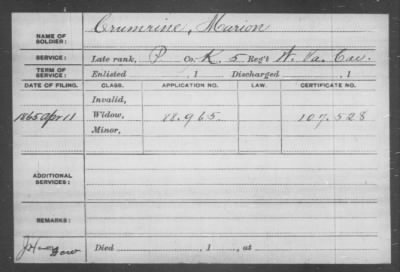 Crumrine, Marion
NAME OF SOLDIER:
SERVICE: Late rank, P Co. K. 5 Reg't W. Va. Cav.
TERM OF SERVICE: Enlisted , 1 Discharged , 1
DATE OF FILING. CLASS. APPLICATION NO. LAW. CERTIFICATE NO.
Invalid,
1865 Apr 11 Widow, 18.965 107.528
Minor,
ADDITIONAL SERVICES:
REMARKS:
Died , 1 , at